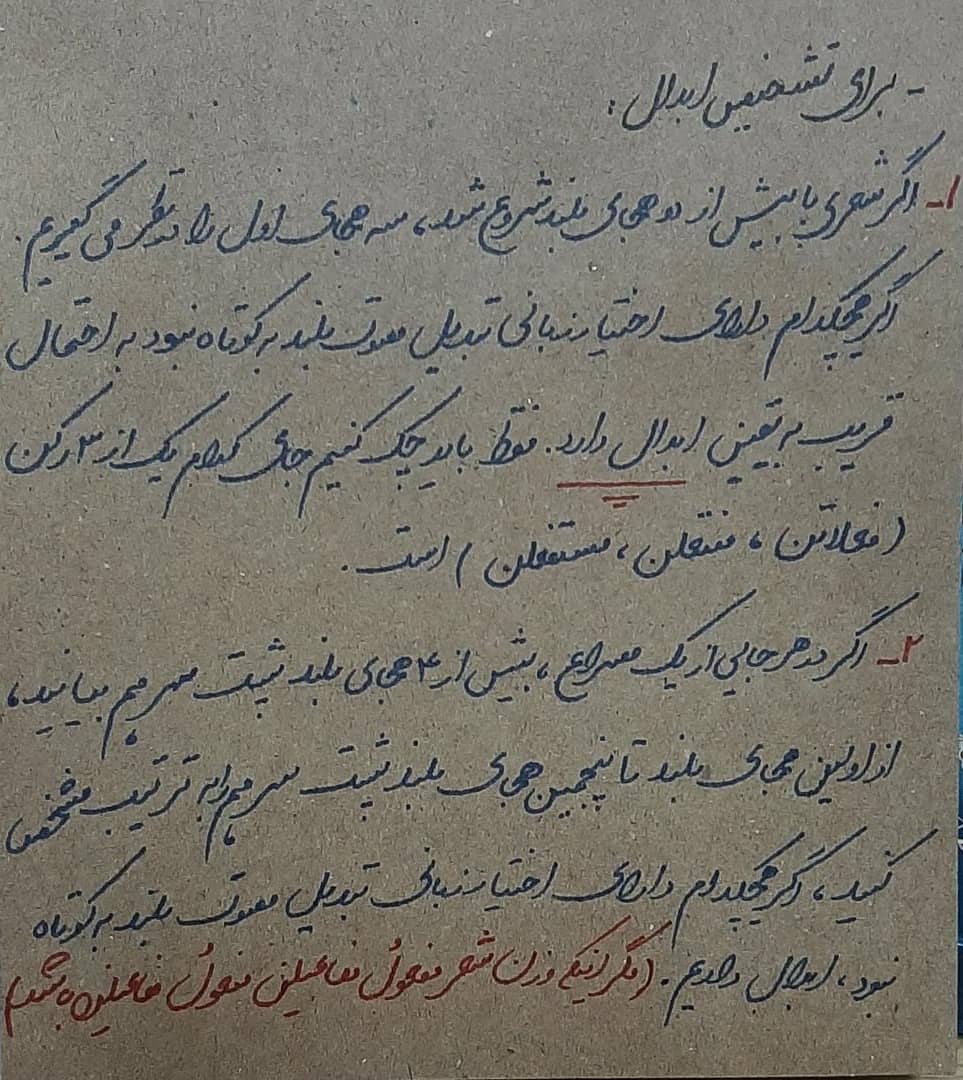 - برای تشخیص ابدال :
۱- اگر شعری با بیش از دو هجای بلند شروع شد، سه هجای اول را در نظر می گیریم.
اگر هیچکدام دارای اختیار زبانی تبدیل مصوت بلند به کوتاه نبود به احتمال
قریب به یقین ابدال دارد. فقط باید چک کنیم جای کدام یک از ۳ رکن
(فعلاتن ، مفتعلن ، مستفعلن) است.
۲- اگر در هر جایی از یک مصراع، بیش از ۴ هجای بلند پشت سر هم بیایند،
از اولین هجای بلند تا پنجمین هجای بلند پشت سر هم را به ترتیب مشخص
کنید، اگر هیچکدام دارای اختیار زبانی تبدیل مصوت بلند به کوتاه
نبود، ابدال داریم. (مگر اینکه وزن شعر مفعولُ مفاعیلن مفعولُ مفاعیلن باشد)